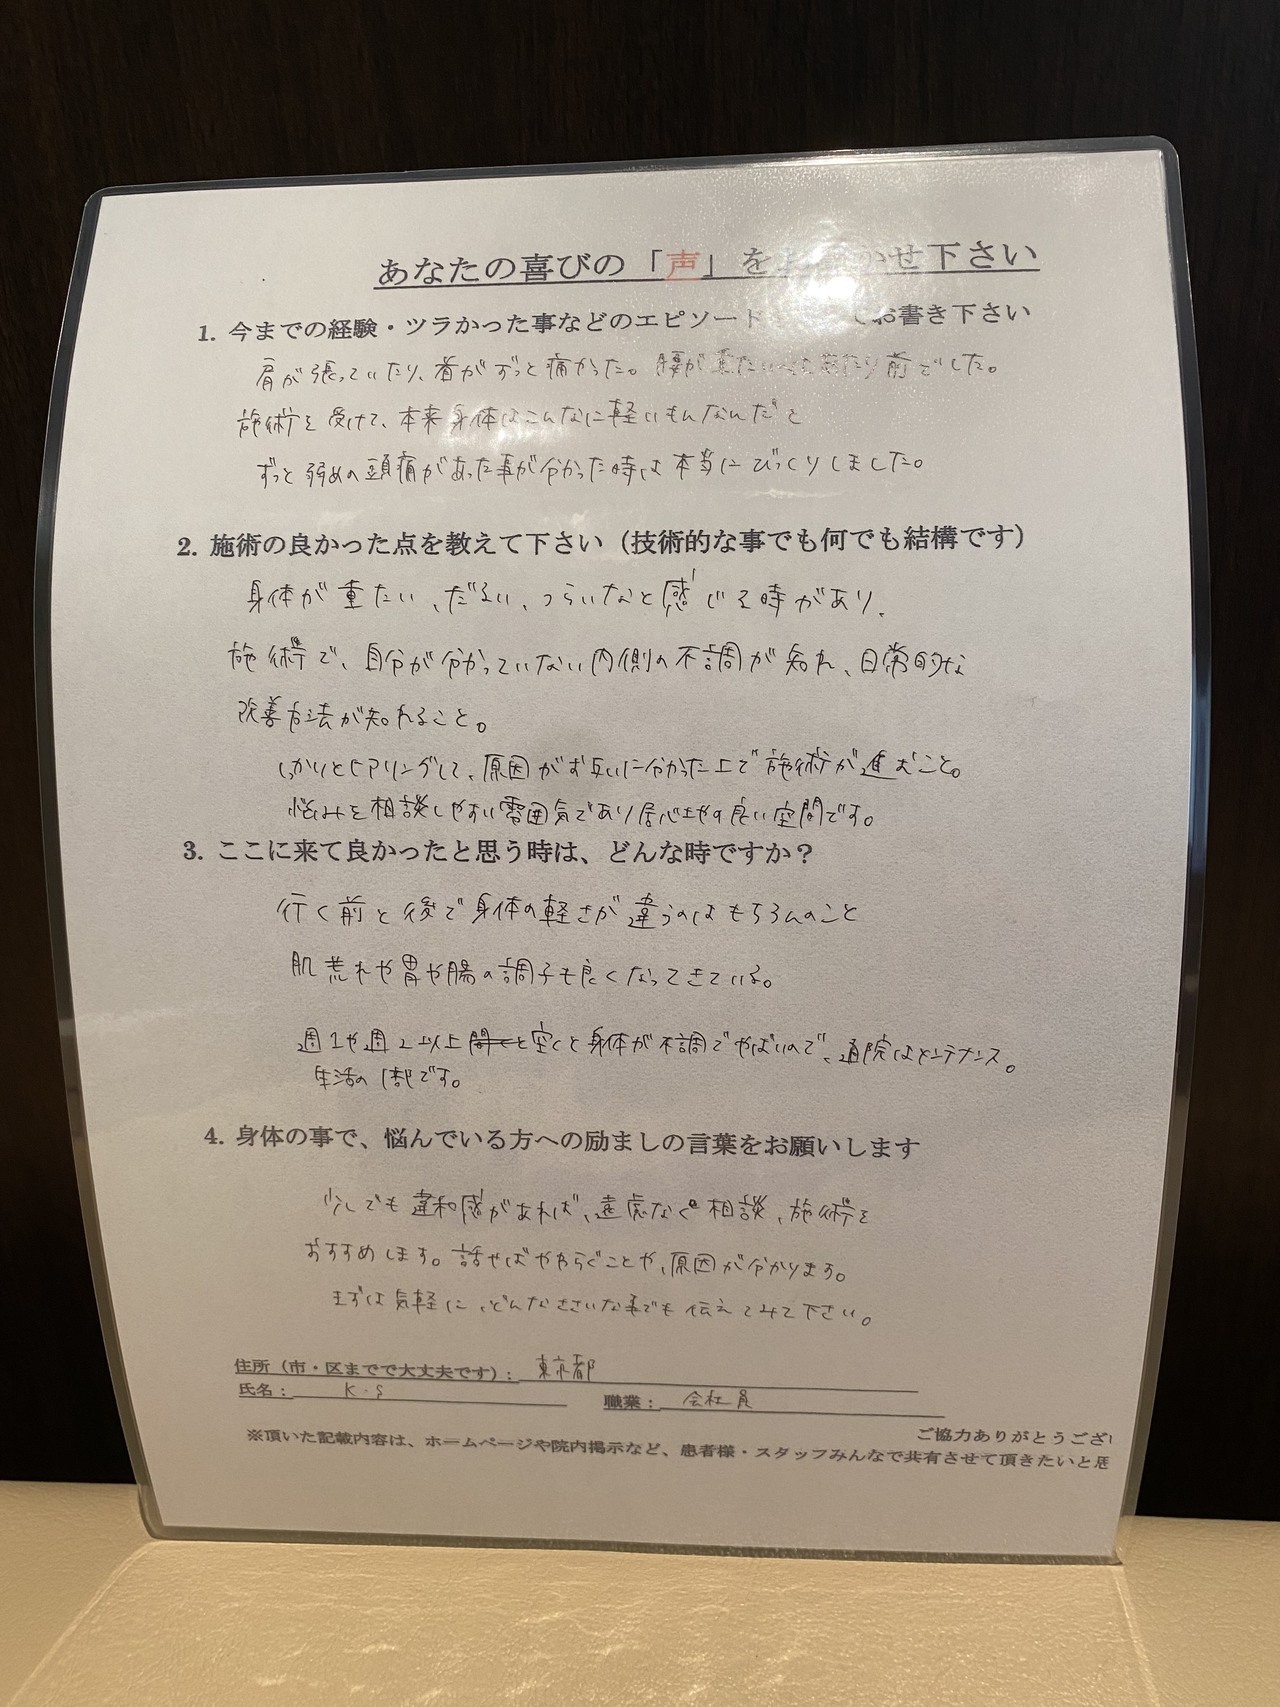 あなたの喜びの「声」をお聞かせ下さい
1. 今までの経験・ツラかった事などのエピソード てお書き下さい
肩が張っていたり、首がずっと痛かった。腰が重たい 当たり前でした。
施術を受けて、本来身体はこんなに軽いもんなんだと
ずっと弱めの頭痛があった事が分かった時は本当にびっくりしました。
2. 施術の良かった点を教えて下さい（技術的な事でも何でも結構です）
身体が重たい、だるい、つらいなと感じる時があり、
施術で、自分が分かっていない内側の不調が知れ、日常的な
改善方法が知れること。
しっかりとヒアリングして、原因がお互いに分かった上で施術が進むこと。
悩みを相談しやすい雰囲気であり居心地の良い空間です。
3. ここに来て良かったと思う時は、どんな時ですか？
行く前と後で身体の軽さが違うのはもちろんのこと
肌荒れや胃や腸の調子も良くなってきている。
週1や週2以上 空くと身体が不調でやばいので、通院はメンテナンス。
生活の1部です。
4. 身体の事で、悩んでいる方への励ましの言葉をお願いします
少しでも違和感があれば、遠慮なく相談、施術を
おすすめします。話せばやわらぐことや、原因が分かります。
まずは気軽に、どんなささいな事でも伝えてみて下さい。
住所（市・区までで大丈夫です）： 東京都
氏名： K・S 職業： 会社員
ご協力ありがとうござい
※頂いた記載内容は、ホームページや院内掲示など、患者様・スタッフみんなで共有させて頂きたいと思